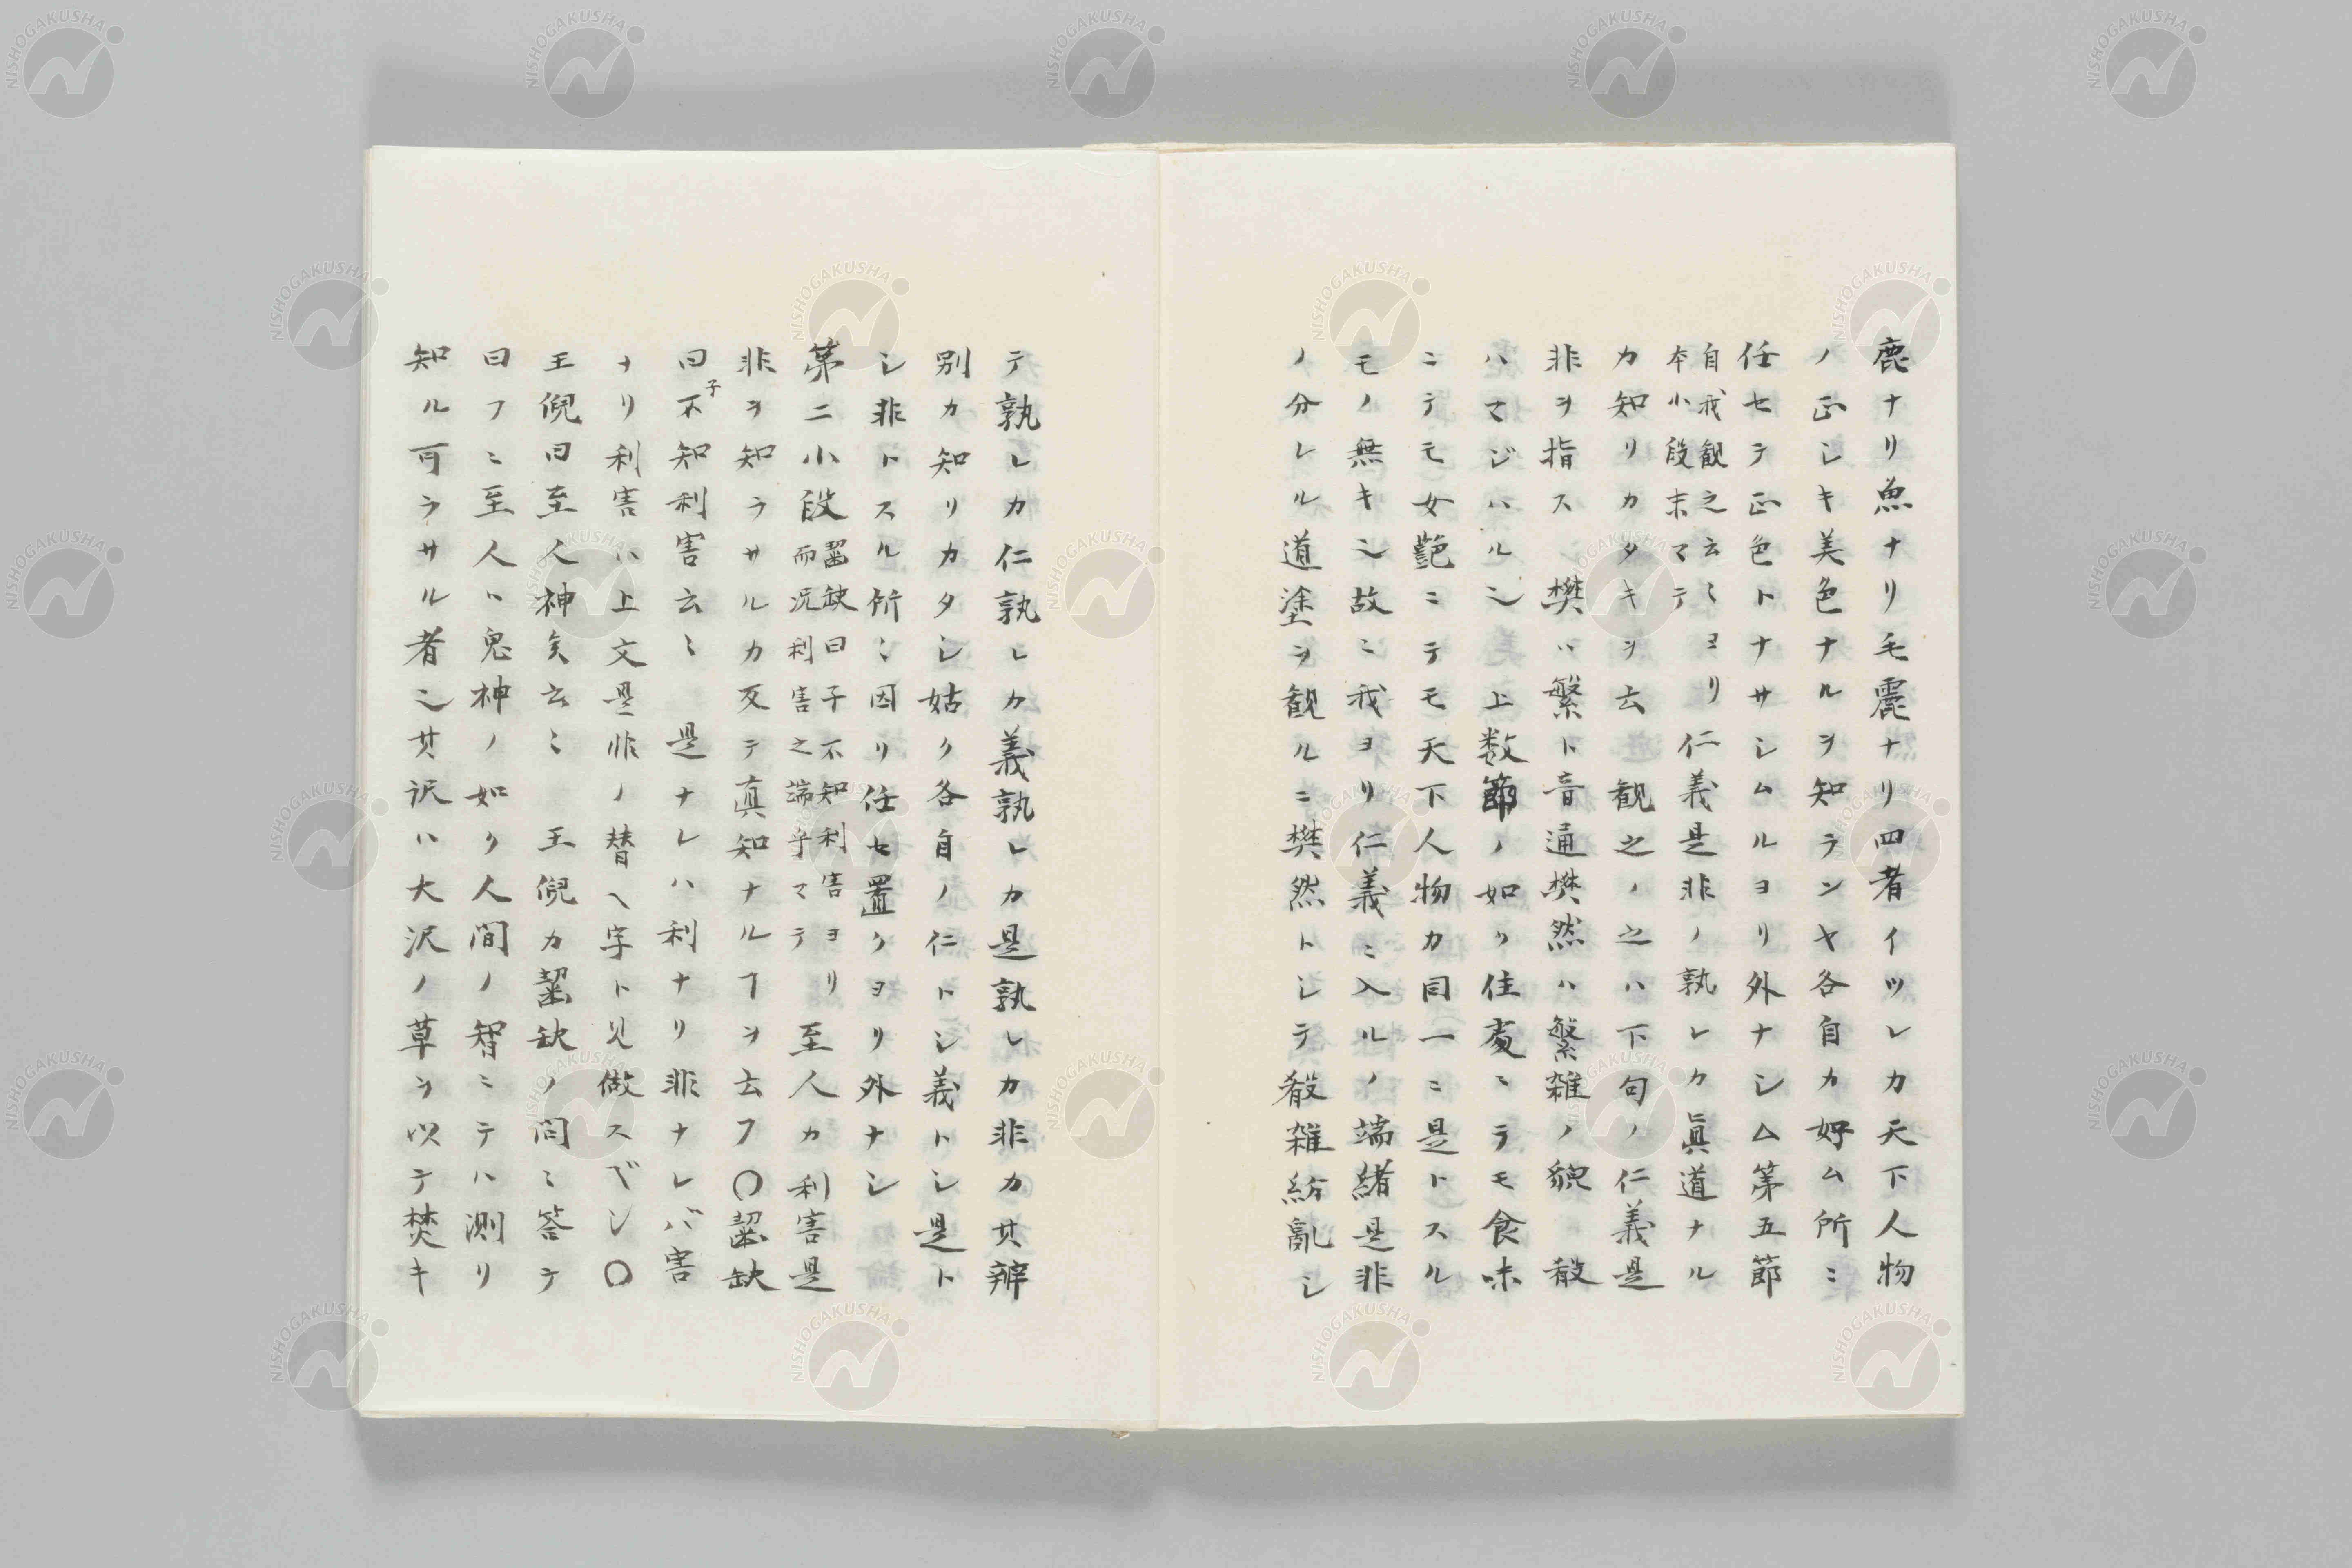 鹿ナリ魚ナリ毛麗ナリ四者イツレカ天下人物
ノ正シキ美色ナルヲ知ランヤ各自カ好ム所ニ
任セテ正色トナサシムルヨリ外ナシ△第五節
自我観之云〻ヨリ
本小段末マテ
仁義是非ノ孰レカ眞道ナル
カ知リカタキヲ云 観之ノ之ハ下句ノ仁義是
非ヲ指ス 樊ハ繁ト音通樊然ハ繁雑ノ貌 殽
ハマジハル也 上数節ノ如ク住處ニテモ食味
ニテモ女艶ニテモ天下人物カ同一ニ是トスル
モノ無キ也故ニ我ヨリ仁義ニ入ルノ端緒是非
ノ分レル道塗ヲ観ルニ樊然トシテ殽雑紛亂シ
テ孰レカ仁孰レカ義孰レカ是孰レカ非カ其辧
別カ知リカタシ姑ク各自ノ仁トシ義トシ是ト
シ非トスル所ニ因リ任セ置クヨリ外ナシ
第二小段
齧缺曰子不知利害ヨリ
而况利害之端乎マテ
至人カ利害是
非ヲ知ラサルカ反テ眞知ナルヿヲ云フ○齧缺
曰子不知利害云〻 是ナレハ利ナリ非ナレバ害
ナリ利害ハ上文是非ノ替ヘ字ト見做スベシ○
王倪曰至人神矣云〻 王倪カ齧缺ノ問ニ答テ
曰フニ至人ハ鬼神ノ如ク人間ノ智ニテハ測リ
知ル可ラサル者也其沢ハ大沢ノ草ヲ以テ焚キ
NISHOGAKUSHA